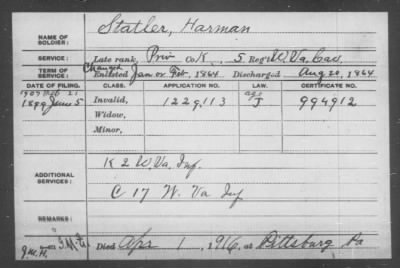 NAME OF SOLDIER: Statler, Harman
SERVICE: Late rank, Priv Co K, 5 Reg't W Va Cav
TERM OF SERVICE: Changed Enlisted Jan or Feb, 1864 Discharged Aug 20, 1864
DATE OF FILING. CLASS. APPLICATION NO. LAW. CERTIFICATE NO.
1907 Feb 21 age
1899 June 5 Invalid, 1229,113 J 994912
Widow,
Minor,
ADDITIONAL SERVICES: K 2 W. Va. Inf.
C 17 W. Va Inf
REMARKS:
Died Apr 1, 1916, at Pittsburg Pa